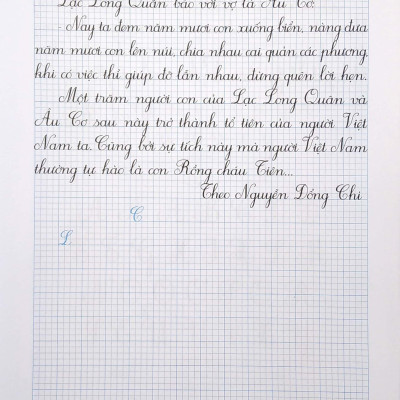 Lạc Long Quân bảo với vợ là Âu Cơ:
- Nay ta đem năm mươi con xuống biển, nàng đưa
năm mươi con lên núi, chia nhau cai quản các phương,
khi có việc thì giúp đỡ lẫn nhau, đừng quên lời hẹn.
Một trăm người con của Lạc Long Quân và
Âu Cơ sau này trở thành tổ tiên của người Việt
Nam ta. Cũng bởi sự tích này mà người Việt Nam
thường tự hào là con Rồng cháu Tiên...
Theo Nguyễn Đổng Chi
C
L